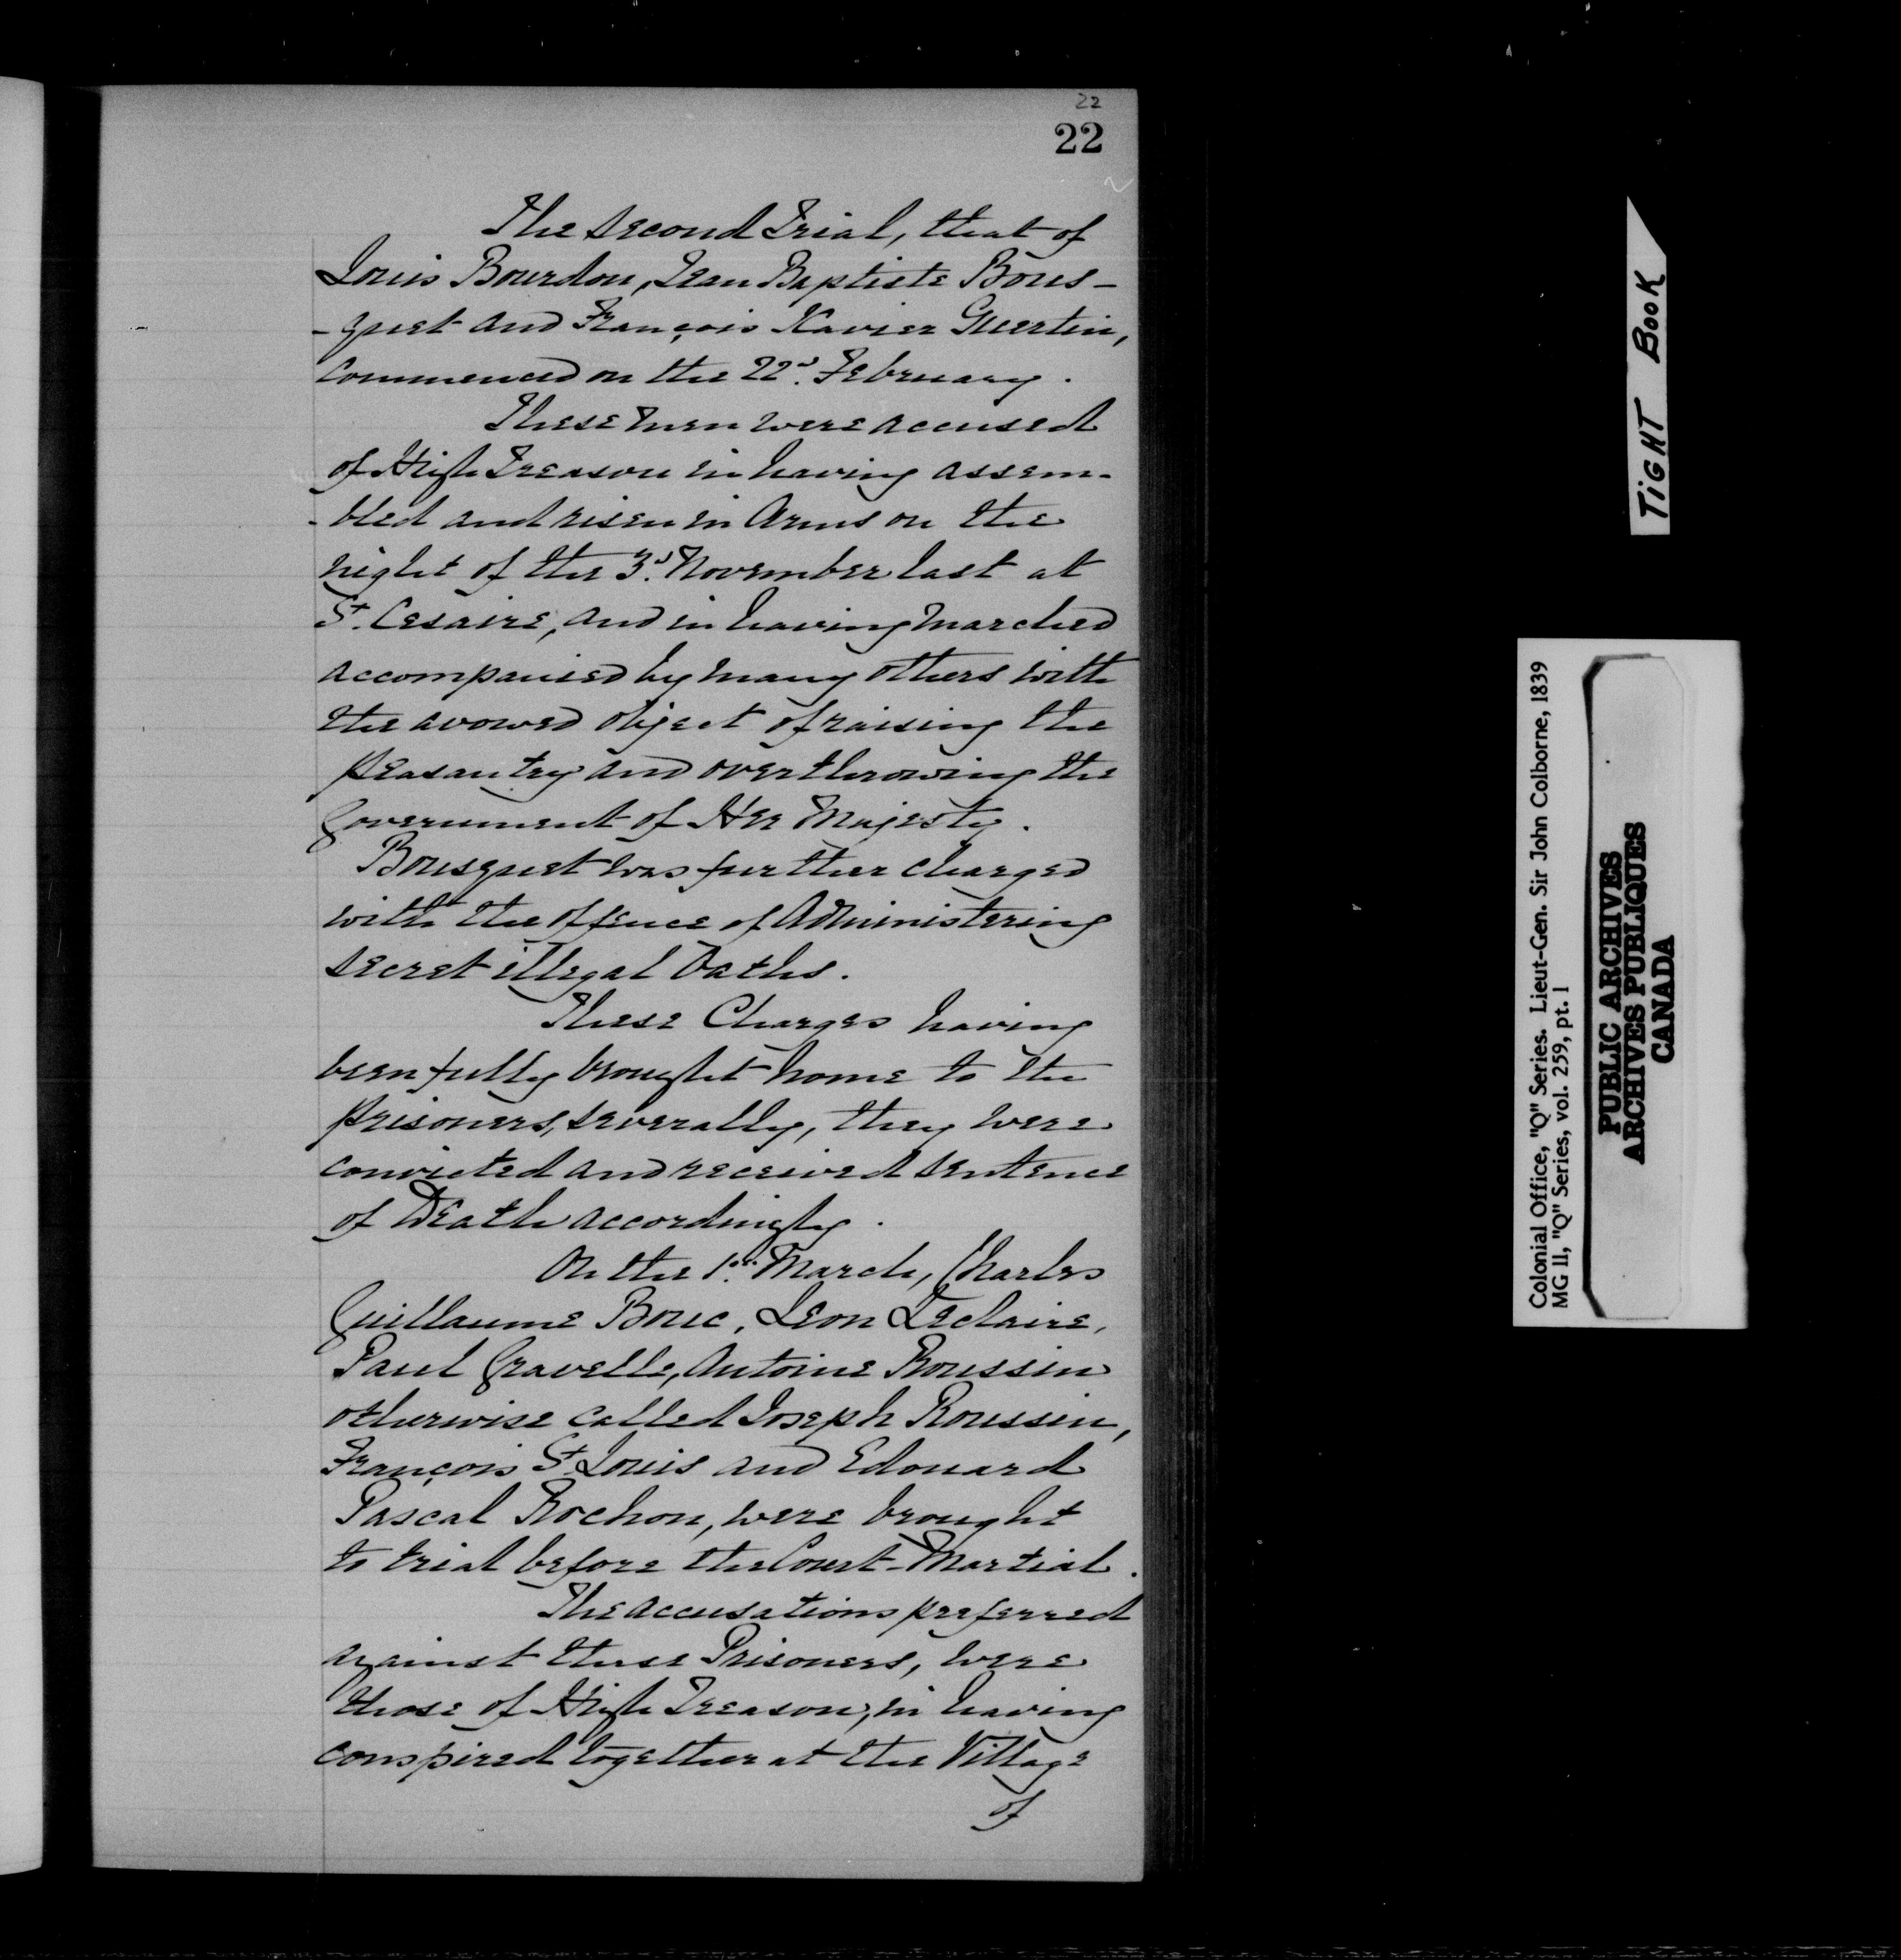 22
22
The second Trial, that of
Louis Bourdon, Jean Baptiste Bous-
-quet and François Xavier Guertin,
commenced on the 22d. February.
These men were accused
of High Treason in having assem-
-bled and risen in Arms on the
night of the 3d. November last at
St. Cesaire, and in having marched
accompanied by many others with
the avowed object of raising the
peasantry and overthrowing the
Government of Her Majesty.
Bousquet was further charged
with the offence of Administering
secret illegal Oaths.
These Charges having
been fully brought home to the
prisoners, severally, they were
convicted and received sentence
of Death accordingly.
On the 1st. March, Charles
Guillaume Bouc, Leon Leclaire,
Paul Gravelle, Antoine Roussin
otherwise called Joseph Roussin,
François St. Louis and Edouard
Pascal Rochon, were brought
to trial before the Court-Martial.
The accusations preferred
against these Prisoners, were
those of High Treason, in having
conspired together at the Village
of
TIGHT BOOK
Colonial Office, "Q" Series. Lieut-Gen. Sir John Colborne, 1839
MG 11, "Q" Series, vol. 259, pt. 1
PUBLIC ARCHIVES
ARCHIVES PUBLIQUES
CANADA